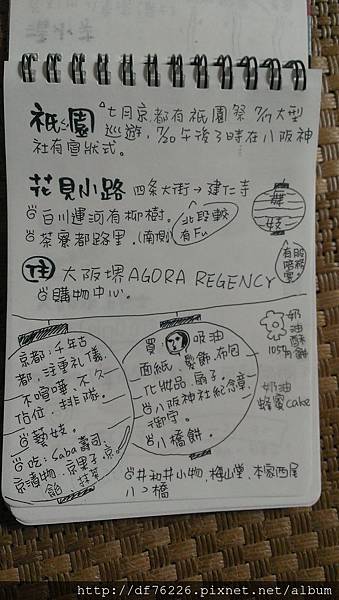 祇園 七月京都有祇園祭 7/17大型
巡遊,7/20午後3時在八阪神
社有宣狀式。
花見小路 四条大街→建仁寺
白川運河有柳樹。
北段較
有Fu
茶寮都路里.(南側)
舞
妓
住 大阪堺AGORA REGENCY
購物中心。
京都:千年古
都,注重礼儀,
不喧嘩,不久
佔位,排隊。
藝妓。
吃:Saba壽司
京漬物,京菓子,凉
飴,抹茶
買 吸油
面紙,髮飾,布包
化妝品,扇子。
八阪神社紀念章,
御守。
八橋餅。
奶
油
酥
餅
105円
奶油
蜂蜜cake
井和井小物,梅山堂,本家西尾
八ッ橋
http://df76226.pixnet.net/album